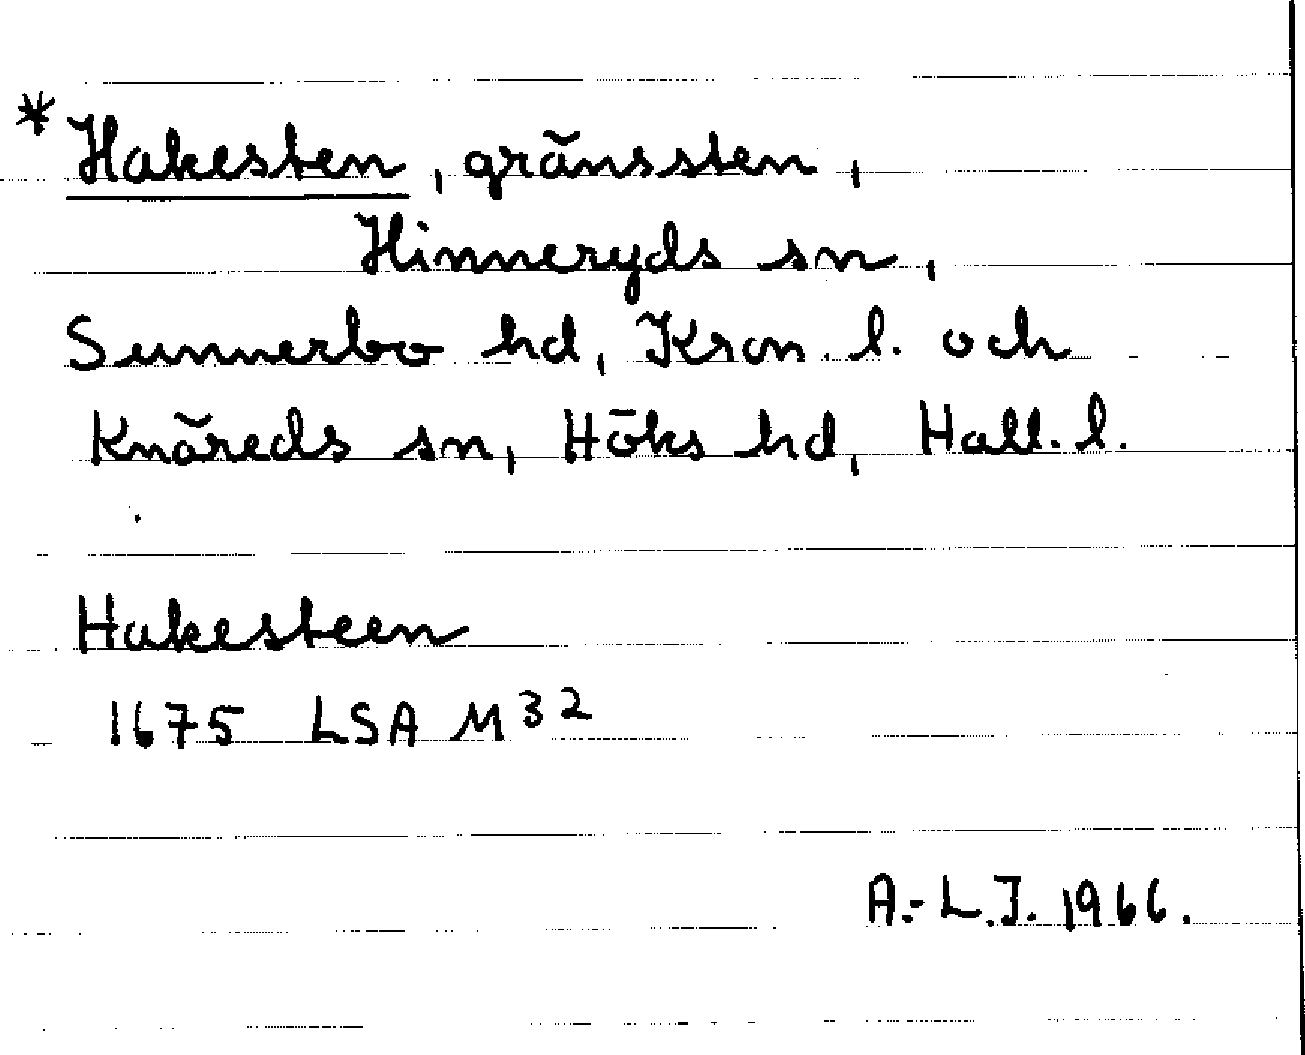 * Hakesten, gränssten,
Hinneryds sn,
Sunnerbo hd, Kron. l. och
Knäreds sn, Höks hd, Hall. l.
Hakesteen
1675 LSA M32
A.-L.J. 1966.